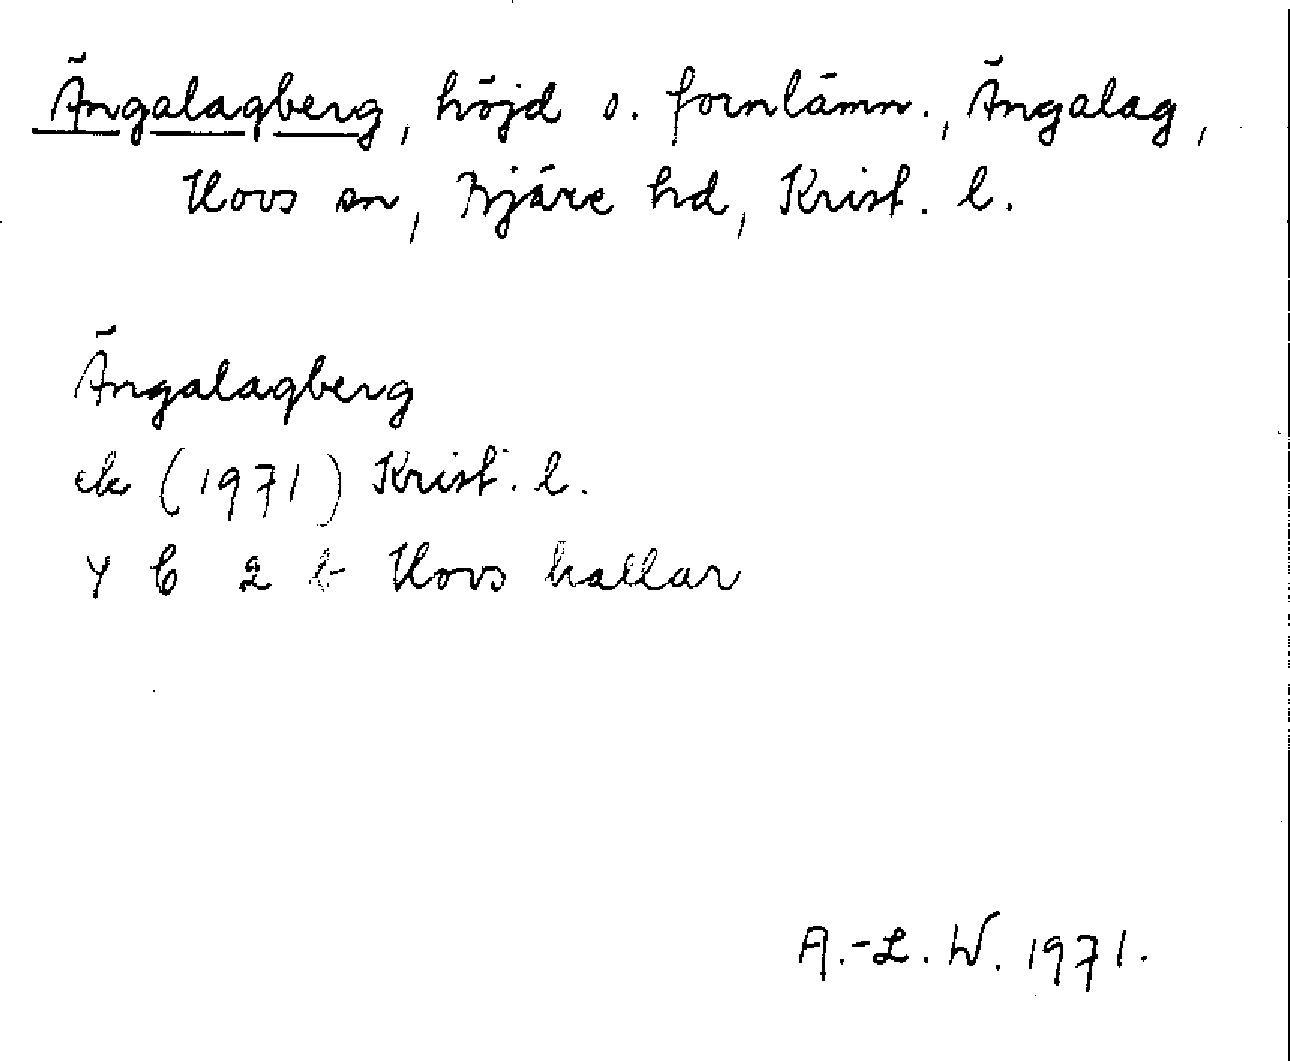 Ängalagberg, höjd o. fornlämn., Ängalag,
Hovs sn, Bjäre hd, Krist. l.
Ängalagberg
ek (1971) Krist. l.
4 C 2 b Hovs hallar
A.-L. W. 1971.